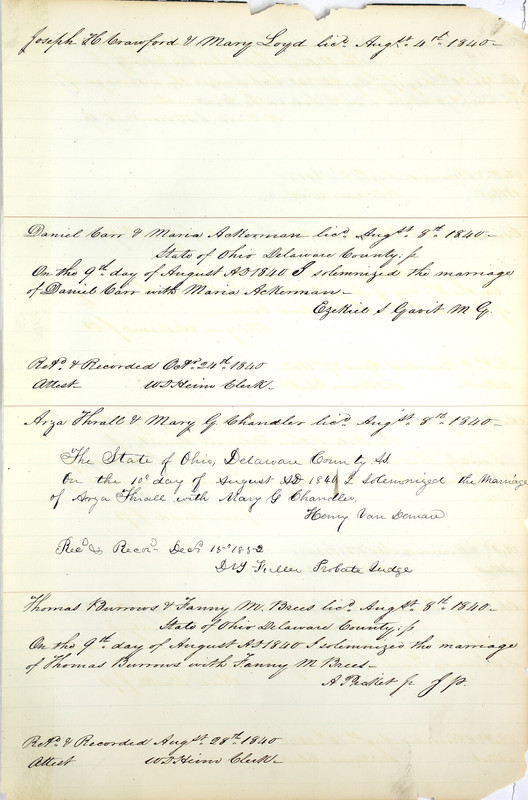 Joseph H Crawford & Mary Loyd licd. Augst. 4th. 1840-
Daniel Carr & Maria Ackerman licd. Augst. 8th. 1840-
State of Ohio Delaware County; ss
On the 9th. day of August AD 1840 I solemnized the marriage
of Daniel Carr with Maria Ackerman-
Ezekiel S Gavit M G.
Retd. & Recorded Octr. 24th. 1840
Attest. Clerk-
Arza Thrall & Mary G. Chandler licd. Augst. 8th. 1840-
The State of Ohio, Delaware County SS.
On the 10th day of August AD 1840 I solemnized the marriage
of Arza Thrall with Mary G Chandler.
Henry Van Deman
Recd & Recor. Decr 15th 1852
Fuller Probate Judge
Thomas Burrows & Fanny M. Brees licd. Augst. 8th. 1840-
State of Ohio Delaware County; ss
On the 9th. day of August AD 1840 I solemnized the marriage
of Thomas Burrows with Fanny M Brees-
A Picket J P.
Retd. & Recorded Augst. 28th. 1840
Attest Clerk-